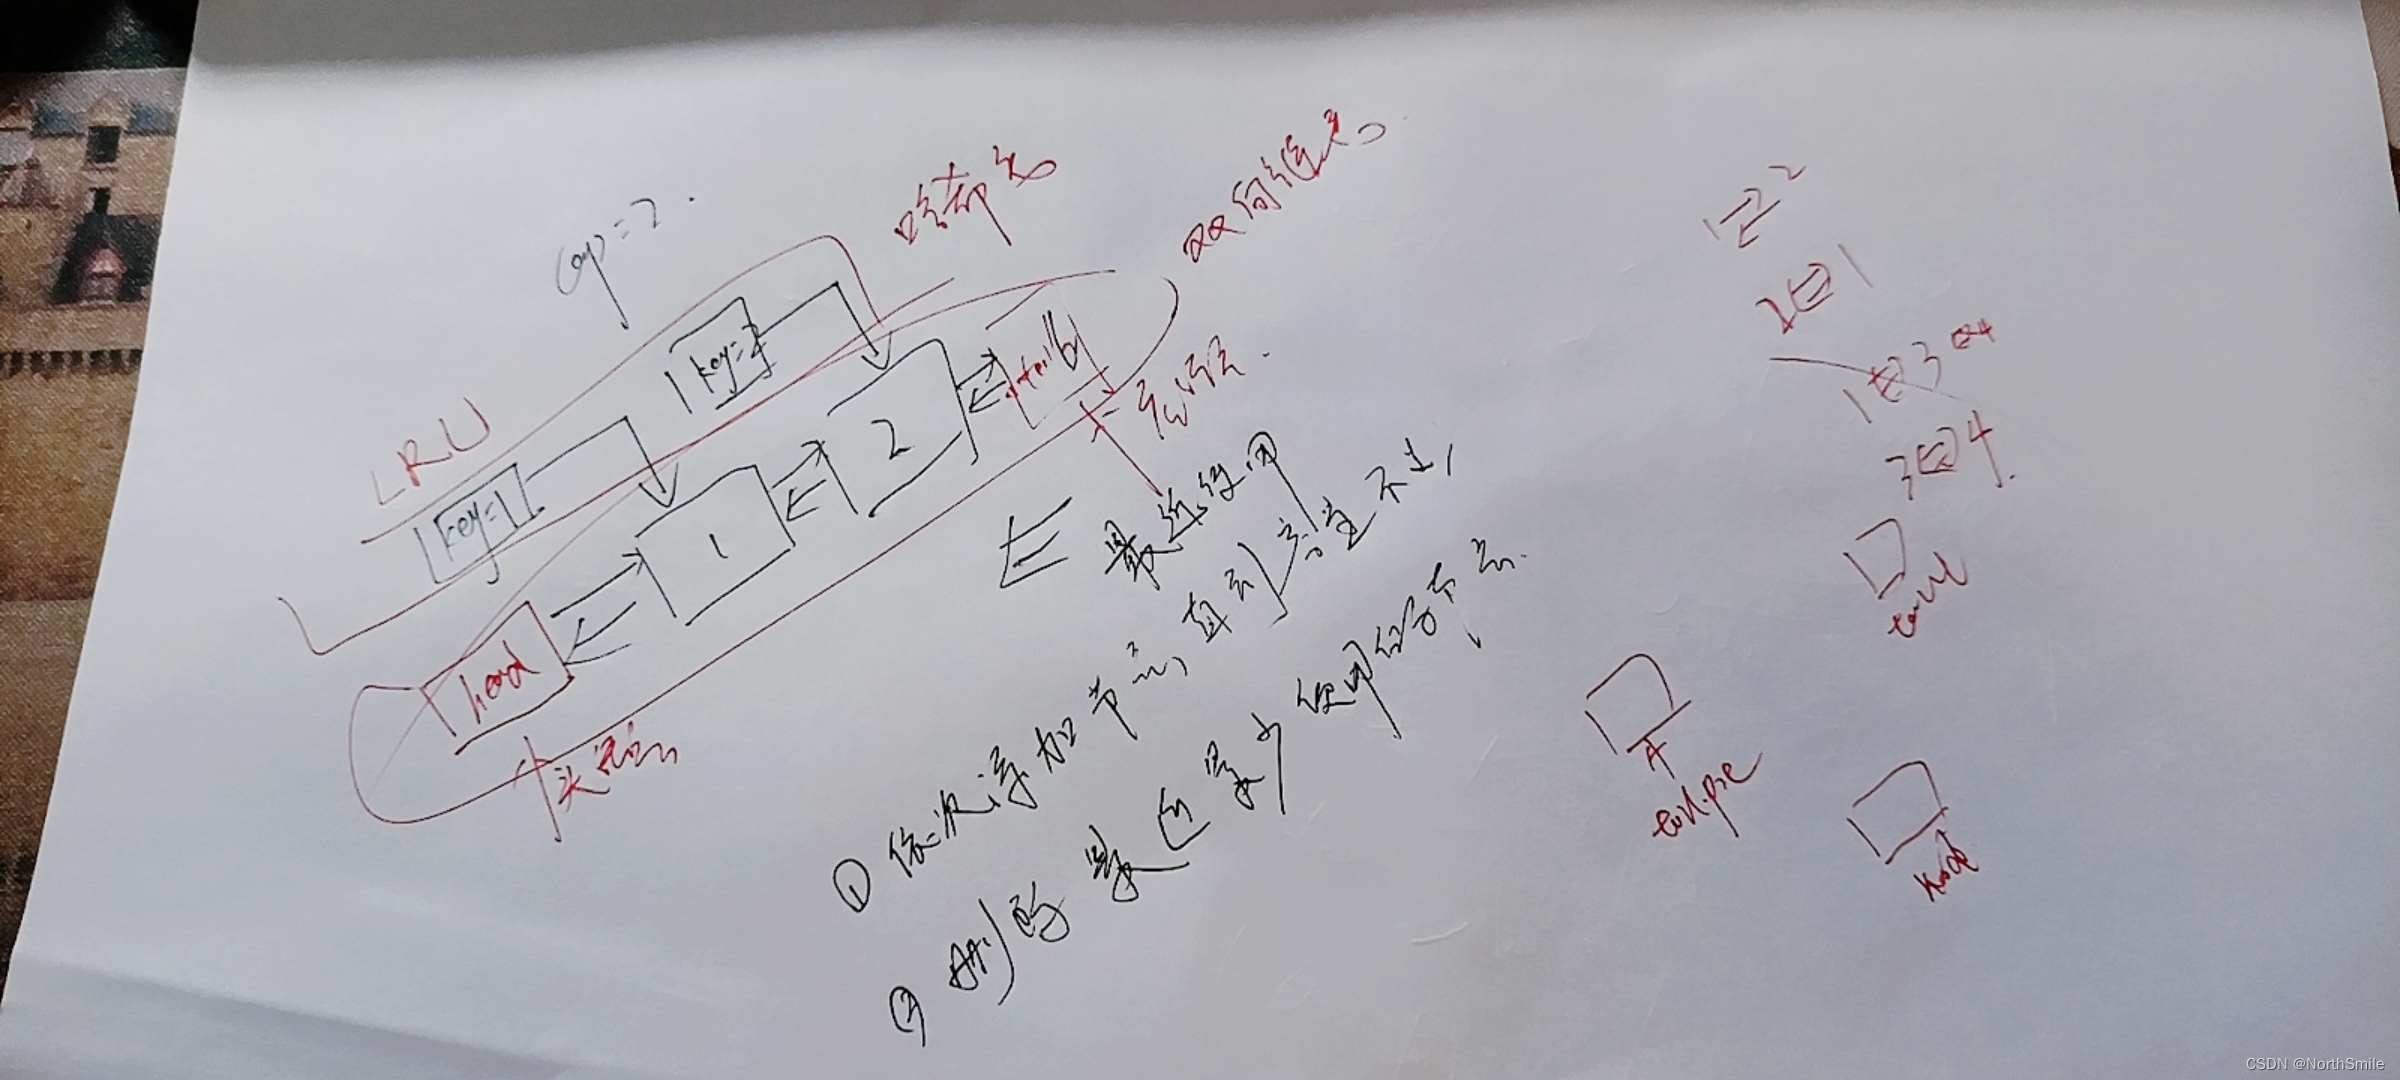 cap=2.
哈希表
双向链表
LRU
key=2
key=1
tail
2
1
head
尾
头
最近使用
①依次添加节点,直到容量不足,
②删的最近最少使用的节点.
1⇌2
2⇌1
1⇌3⇌4
3⇌4.
eclipse
CSDN @NorthSmile